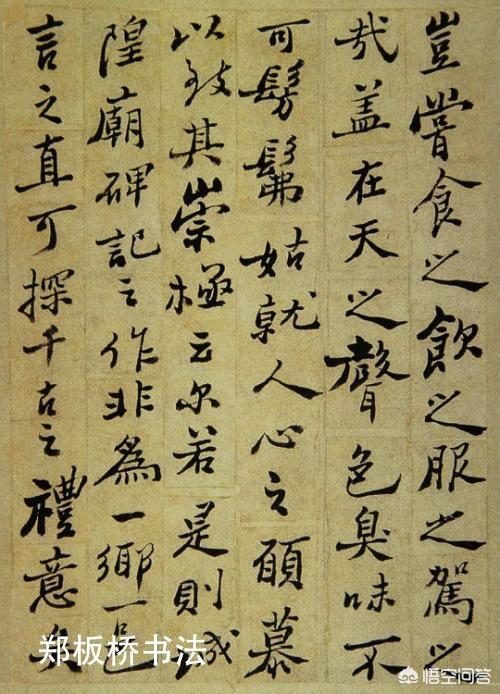 豈嘗食之飲之服之駕之
哉盖在天之聲色臭味不
可髣髴姑就人心之願慕
以致其崇極云尔若是則城
隍廟碑記之作非為一鄉一邑
言之直可探千古之禮意矣
郑板桥书法
悟空问答